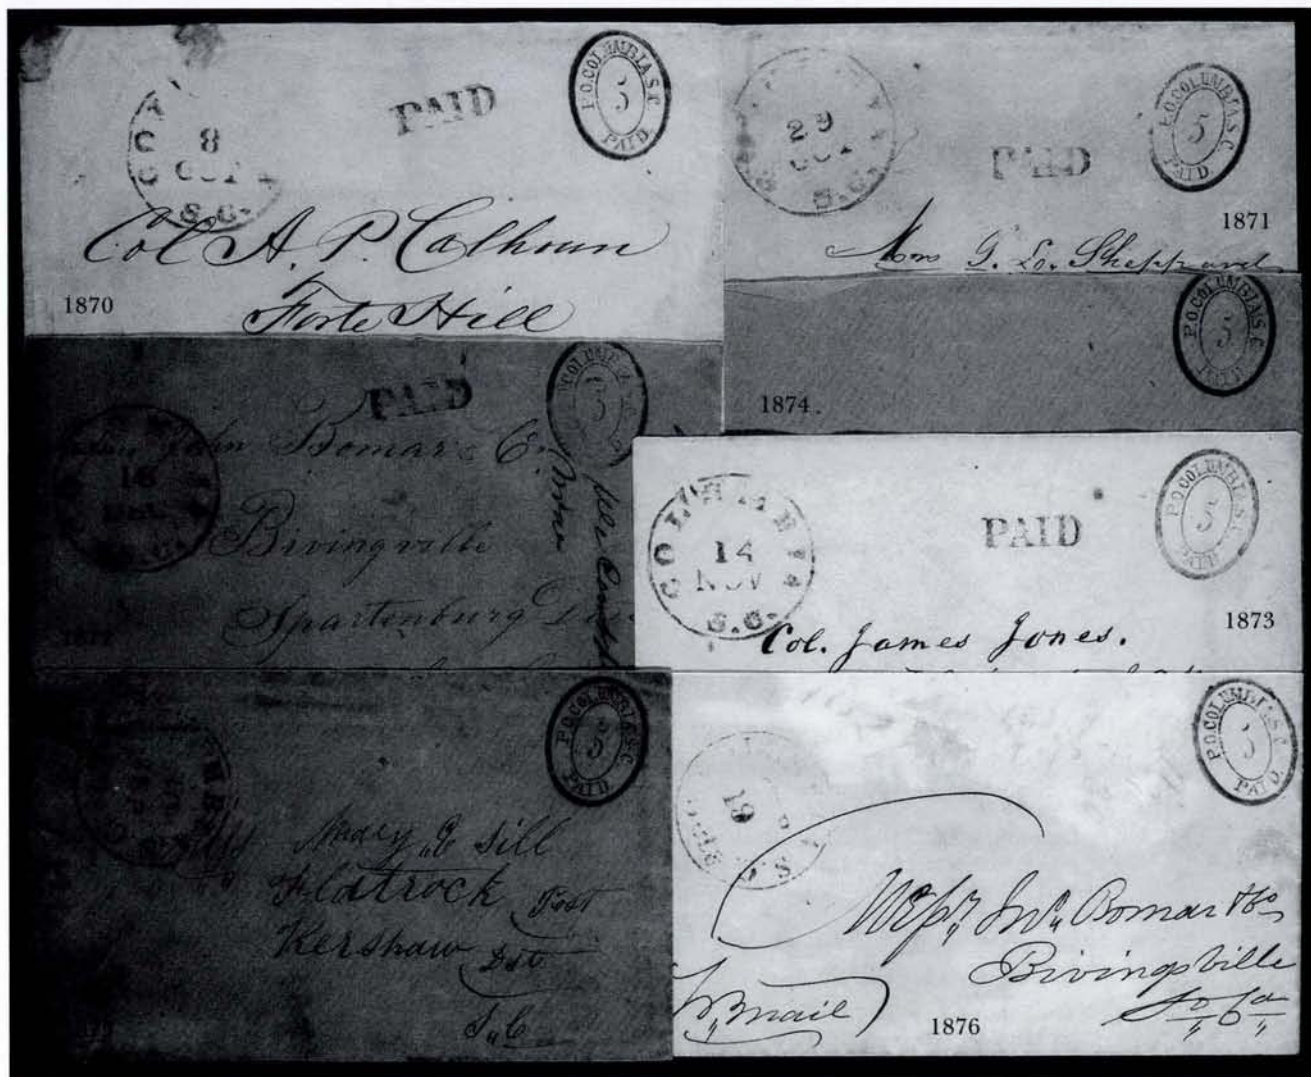 8
OCT
S.C.
PAID
P.O. COLUMBIA S.C.
5
PAID.
Col A. P. Calhoun
Forte Hill
1870
29
OCT
S.C.
PAID
P.O. COLUMBIA S.C.
5
PAID.
Mrs G. L. Sheppard
1871
P.O. COLUMBIA S.C.
5
PAID
1874.
16
PAID
5
John Bomar & C.
Bivingville
Spartenburg
COLUMBIA
14
NOV
S.C.
PAID
P.O. COLUMBIA S.C.
5
PAID
Col. James Jones.
1873
P.O. COLUMBIA S.C.
5
PAID
Mary C Sill
Flatrock Post
Kershaw Dst
S,,C
19
P.O. COLUMBIA S.C.
5
PAID.
Messrs Jno Bomar & Co
Bivingsville
So Ca
mail
1876